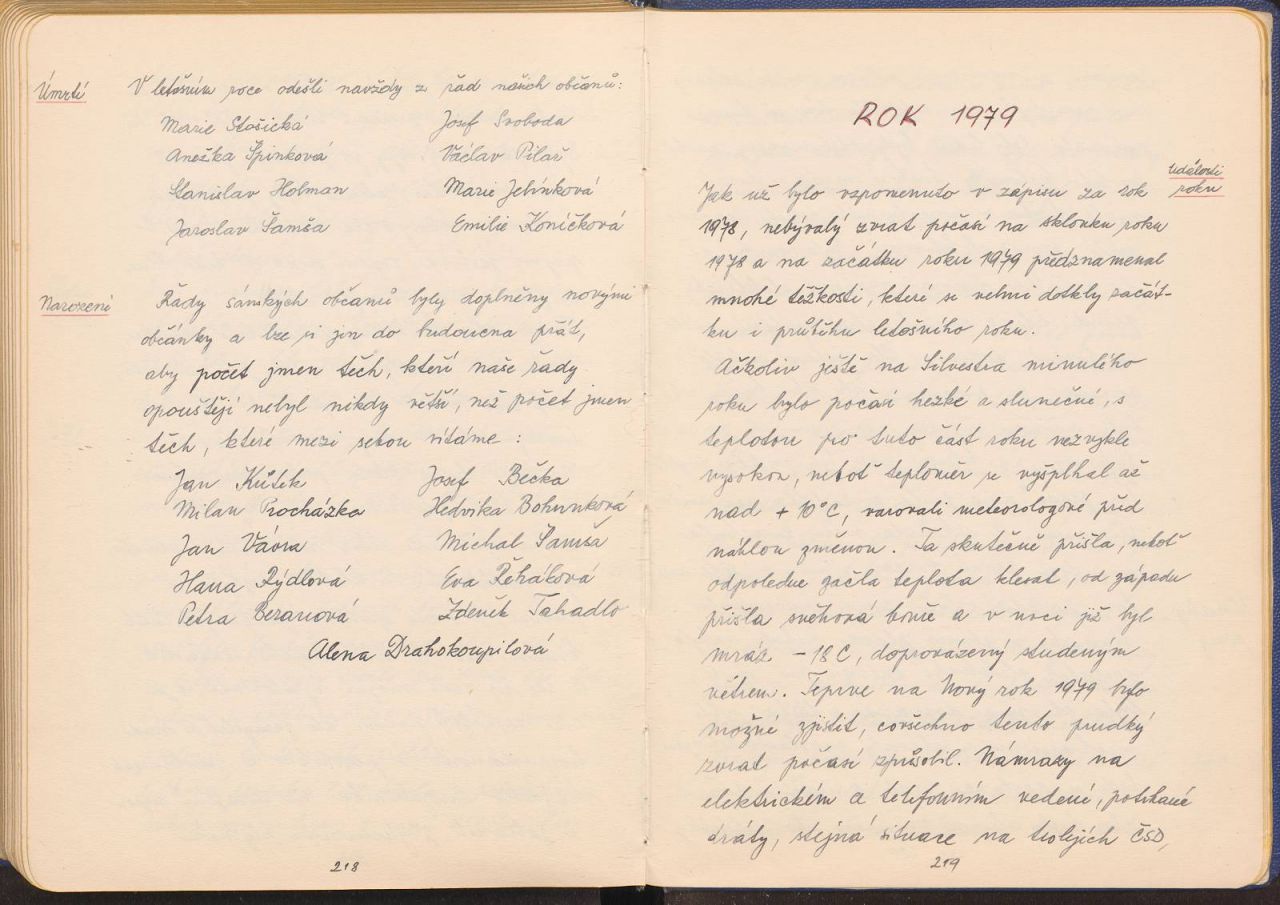 Úmrtí
V letošním roce odešli navždy z řad našich občanů:
Marie Stošická Josef Svoboda
Anežka Špinková Václav Pilař
Stanislav Holman Marie Jelínková
Jaroslav Šamša Emilie Koníčková
Narození
Řady sánských občanů byly doplněny novými
občánky a lze si jen do budoucna přát,
aby počet jmen těch, kteří naše řady
opouštějí nebyl nikdy větší, než počet jmen
těch, které mezi sebou vítáme:
Jan Kůtek Josef Bečka
Milan Procházka Hedvika Bohunková
Jan Vávra Michal Šamša
Hana Rýdlová Eva Řeháková
Petra Beranová Zdeněk Tahadlo
Alena Drahokoupilová
218
ROK 1979
události
roku
Jak už bylo vzpomenuto v zápisu za rok
1978, nebývalý zvrat počasí na sklonku roku
1978 a na začátku roku 1979 předznamenal
mnohé těžkosti, které se velmi dotkly začát-
ku i průběhu letošního roku.
Ačkoliv ještě na Silvestra minulého
roku bylo počasí hezké a slunečné, s
teplotou pro tuto část roku nezvykle
vysokou, neboť teploměr se vyšplhal až
nad + 10°C, varovali meteorologové před
náhlou změnou. Ta skutečně přišla, neboť
odpoledne začla teplota klesat, od západu
přišla sněhová bouře a v noci již byl
mráz - 18 C, doprovázený studeným
větrem. Teprve na Nový rok 1979 bylo
možné zjistit, co všechno tento prudký
zvrat počasí způsobil. Námrazy na
elektrickém a telefonním vedení, potrhané
dráty, stejná situace na trolejích ČSD,
219